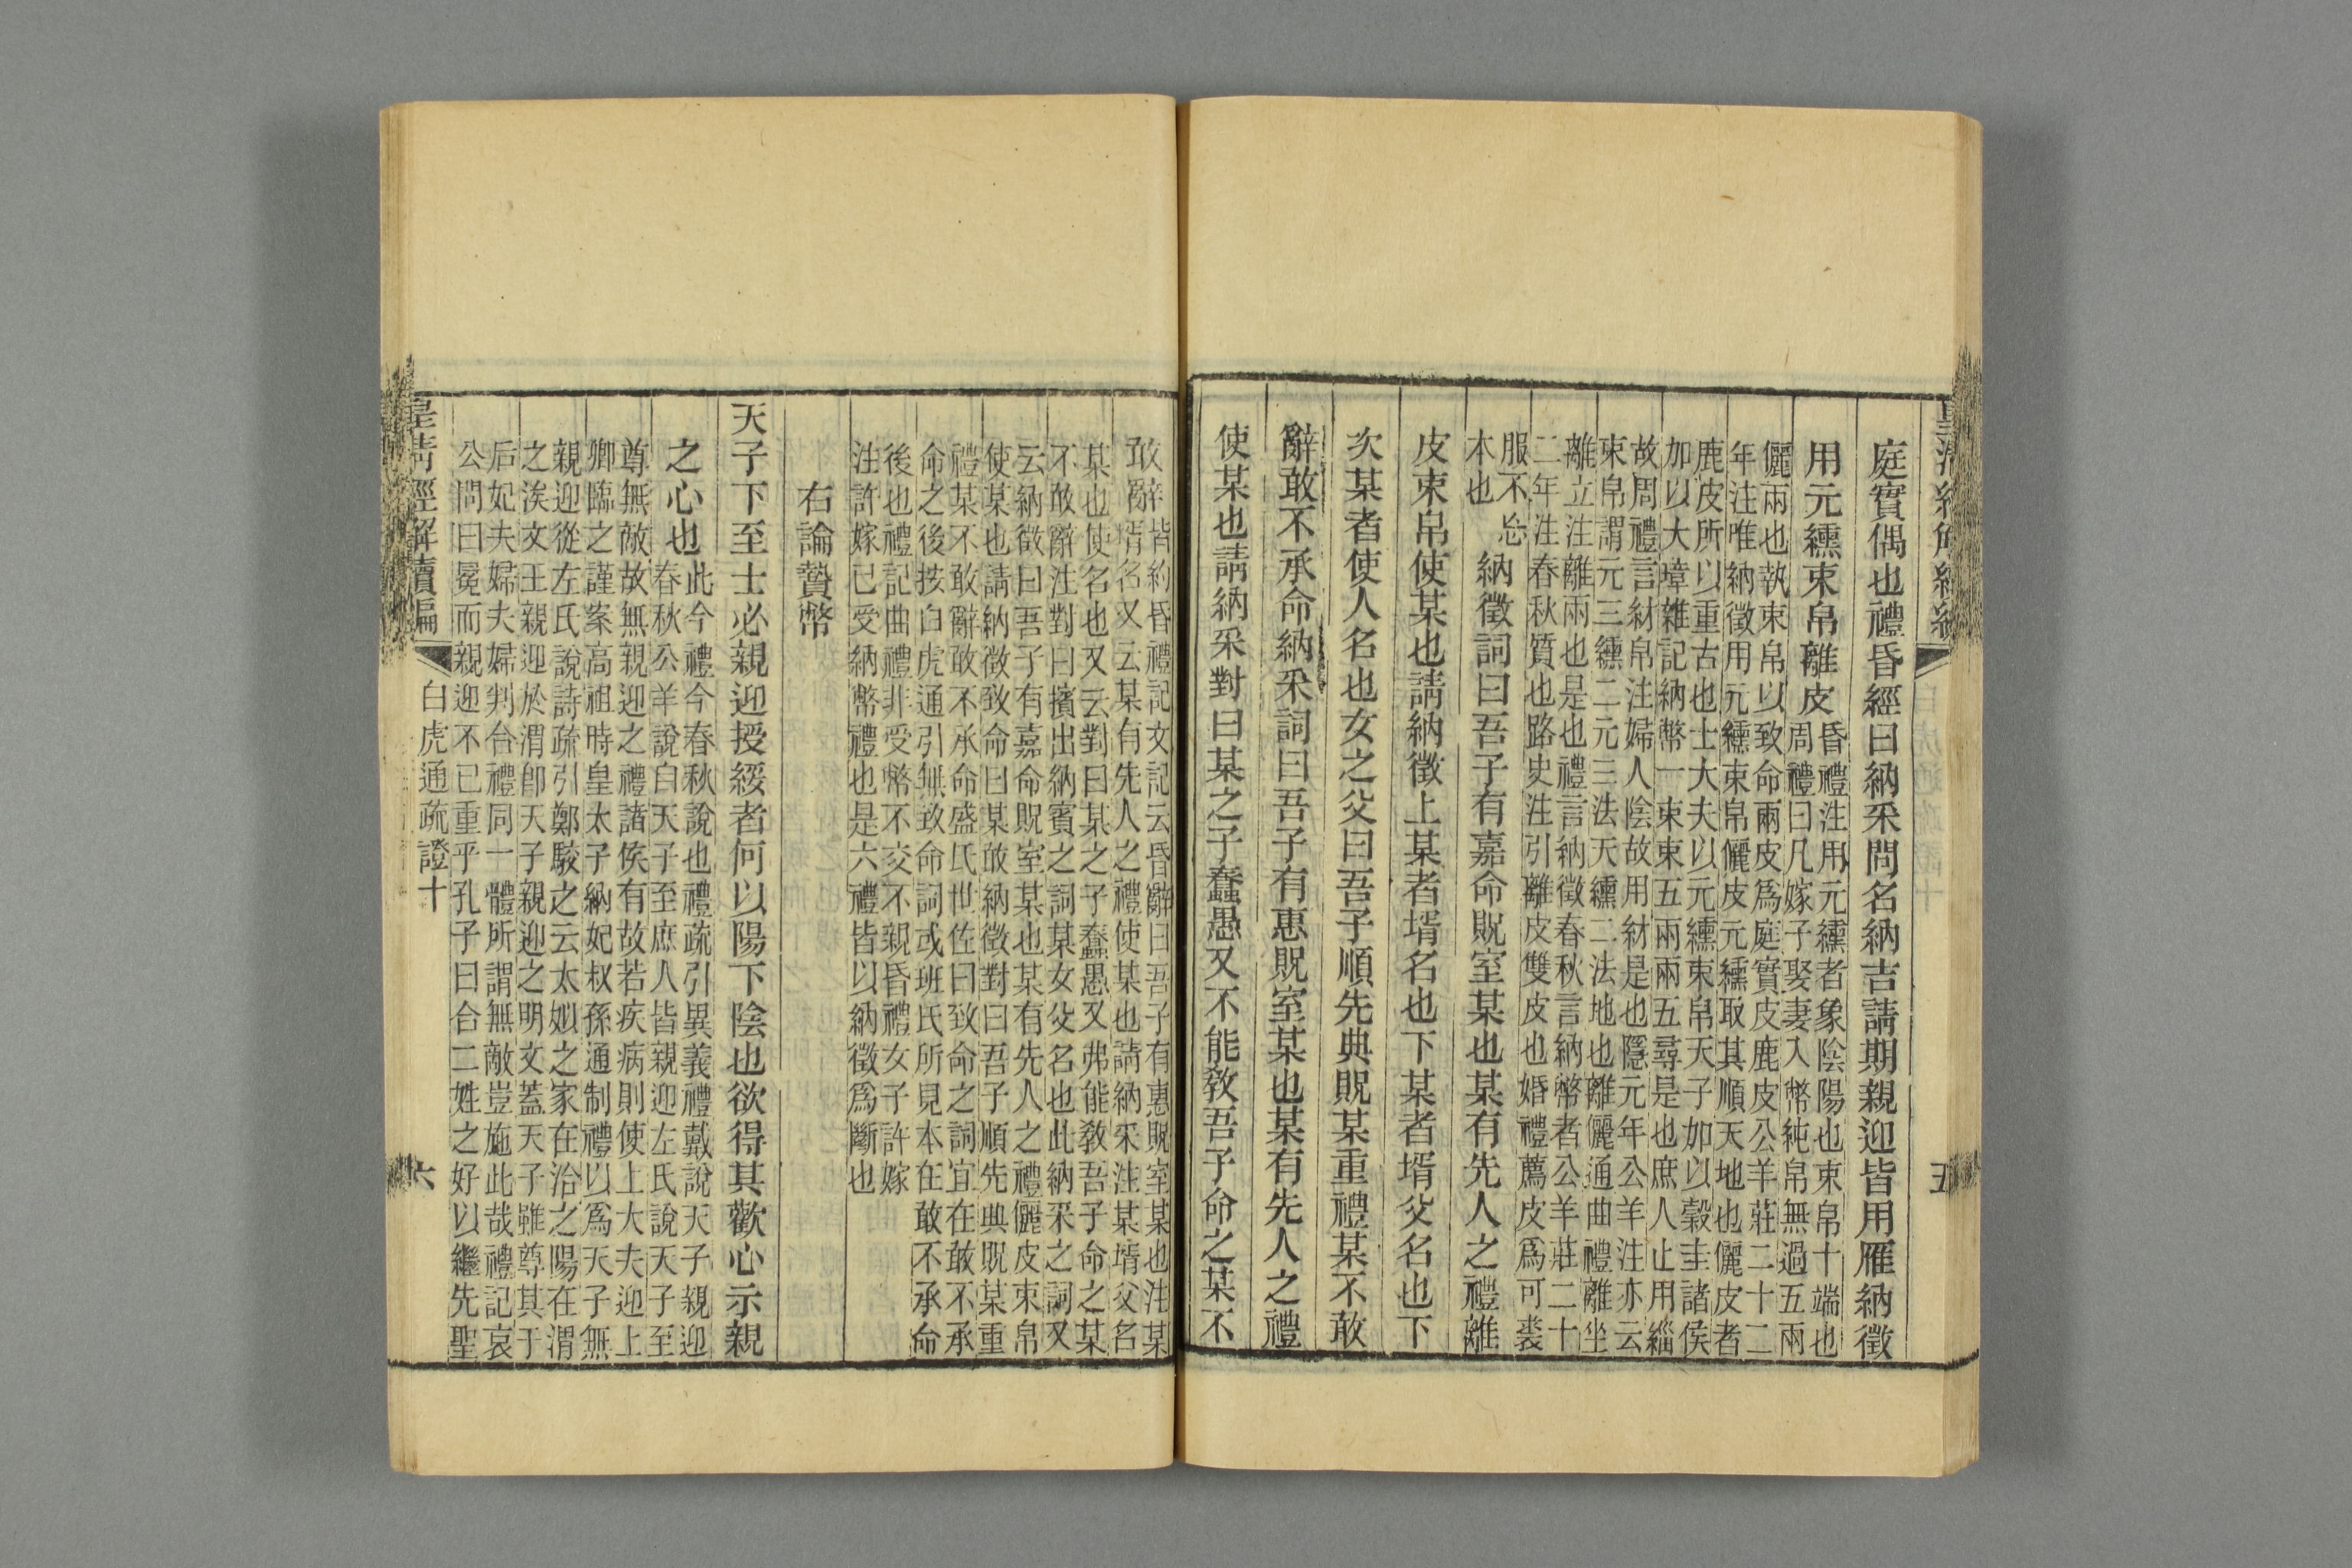 庭實偶也禮昏經曰納采問名納吉請期親迎皆用雁納徵
用元纁束帛離皮
昏禮注用元纁者象陰陽也束帛十端也
周禮曰凡嫁子娶妻入幣純帛無過五兩
儷兩也執束帛以致命兩皮爲庭實皮鹿皮公羊莊二十二
年注唯納徵用元纁束帛儷皮元纁取其順天地也儷皮者
鹿皮所以重古也士大夫以元纁束帛天子加以穀圭諸侯
加以大璋雜記納幣一束束五兩兩五尋是也庶人止用緇
故周禮言紂帛注婦人陰故用紂是也隱元年公羊注亦云
束帛謂元三纁二元三法天纁二法地也離儷通曲禮離坐
離立注離兩也是也禮言納徵春秋言納幣者公羊莊二十
二年注春秋質也路史注引離皮雙皮也婚禮薦皮爲可裘
服不忘
本也
納徵詞曰吾子有嘉命貺室某也某有先人之禮離
皮束帛使某也請納徵上某者壻名也下某者壻父名也下
次某者使人名也女之父曰吾子順先典貺某重禮某不敢
辭敢不承命納采詞曰吾子有惠貺室某也某有先人之禮
使某也請納采對曰某之子蠢愚又不能敎吾子命之某不
敢辭
皆約昏禮記文記云昏辭曰吾子有惠貺室某也注某
壻名又云某有先人之禮使某也請納采注某壻父名
某也使名也又云對曰某之子蠢愚又弗能敎吾子命之某
不敢辭注對曰擯出納賓之詞某女父名也此納采之詞又
云納徵曰吾子有嘉命貺室某也某有先人之禮儷皮束帛
使某也請納徵致命曰某敢納徵對曰吾子順先典貺某重
禮某不敢辭敢不承命盛氏世佐曰致命之詞宜在敢不承
命之後按白虎通引無致命詞或班氏所見本在敢不承命
後也禮記曲禮非受幣不交不親昏禮女子許嫁
注許嫁已受納幣禮也是六禮皆以納徵爲斷也
右論贄幣
天子下至士必親迎授綏者何以陽下陰也欲得其歡心示親
之心也
此今禮今春秋說也禮疏引異義禮戴說天子親迎
春秋公羊說白天子至庶人皆親迎左氏說天子至
尊無敵故無親迎之禮諸侯有故若疾病則使上大夫迎上
卿臨之謹案高祖時皇太子納妃叔孫通制禮以爲天子無
親迎從左氏說詩疏引鄭駮之云太姒之家在洽之陽在渭
之涘文王親迎於渭卽天子親迎之明文蓋天子雖尊其于
后妃夫婦夫婦判合禮同一體所謂無敵豈施此哉禮記哀
公問曰冕而親迎不已重乎孔子曰合二姓之好以繼先聖
皇淸經解續編
白虎通疏證十
六